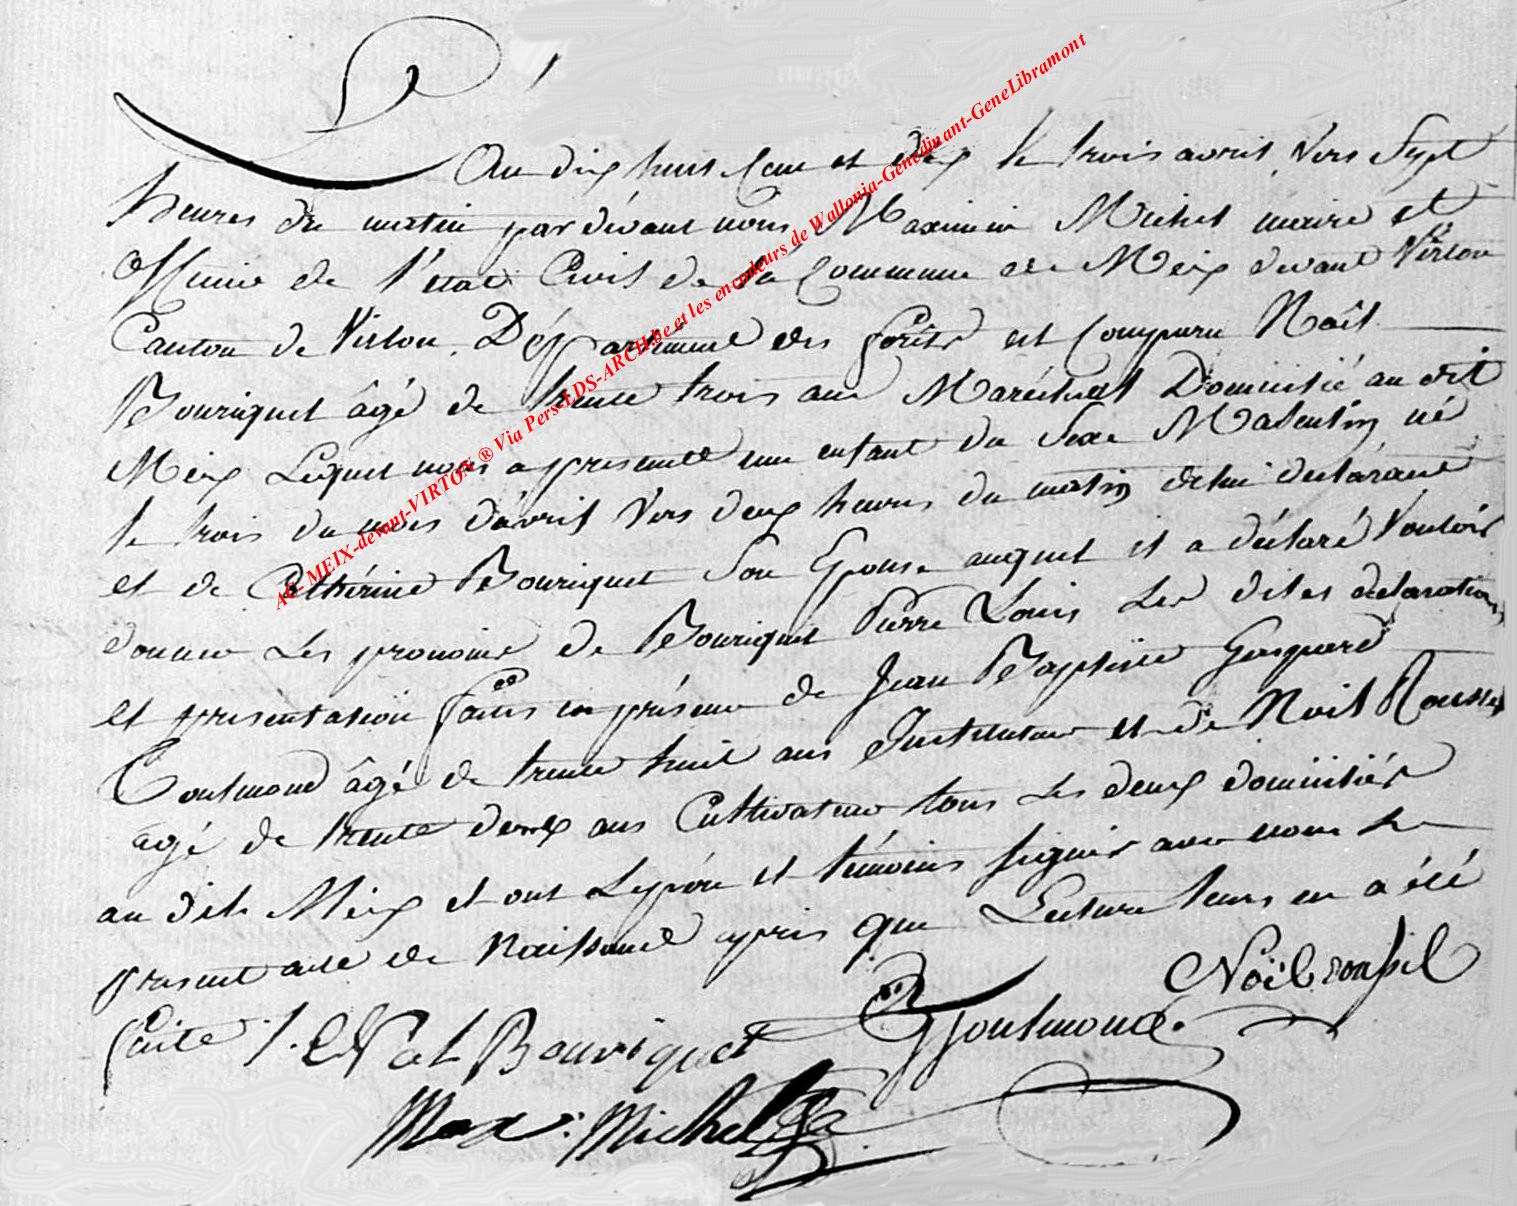 An dix huit Cent et dix le trois avril vers Sept
heures du matin par dévant nous Maximin Michel maire et
officier de l'état Civil de la Commune de Meix devant Virton
Canton de Virton. Département des forêts est Comparu Noël
Bouriquet âgé de trente trois ans Maréchal Domicilié au dit
Meix Lequel nous a présenté un enfant du Sexe Masculin né
le trois du mois d'avril vers deux heures du matin de lui déclarant
et de Cathérine Bouriquet Son Epouse auquel il a déclaré Vouloir
donner Les prenoms de Bouriquet Pierre Louis Les dites declarations
et presentation faites en présence de Jean Baptiste Gaspard
Goulmond âgé de trente huit ans Instituteur et de Noël Roussel
agé de trente deux ans Cultivateur tous Les deux domiciliés
au dit Meix et ont Le père et témoins signés avec nous Le
present acte de Naissance après que Lecture leurs en a été
faite /. Noël Bouriquet Goulmond. Noël roussel
Max: Michel
AC MEIX-devant-VIRTON ® Via Pers-LDS-ARCH.be et les encodeurs de Wallonia-Genedinant-GeneLibramont